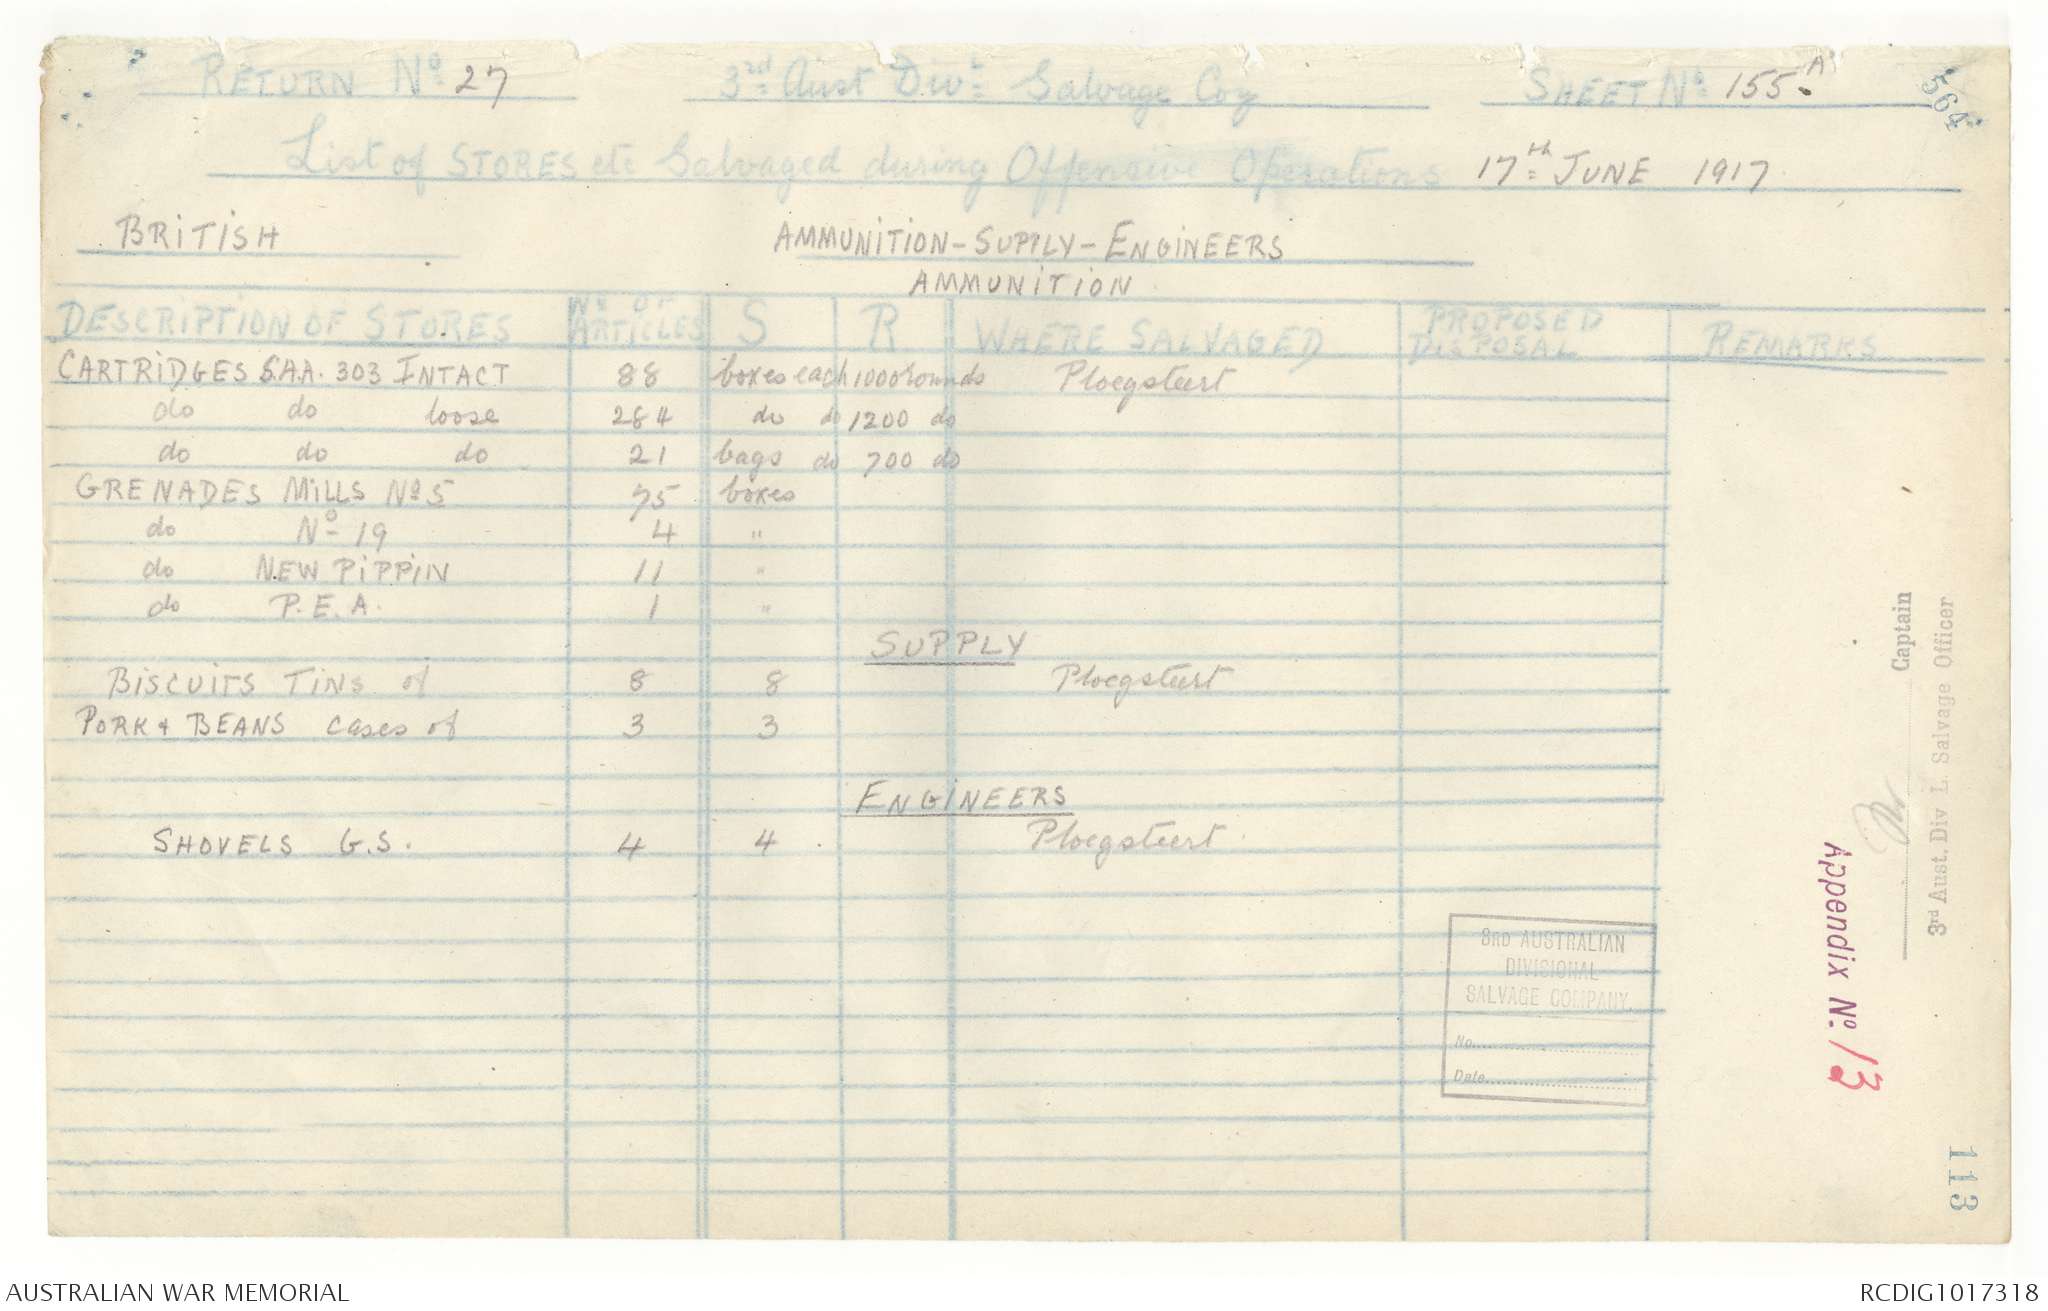 RETURN No. 27 3rd Aust Divl Salvage Coy SHEET No. 155.A
564
List of STORES etc Salvaged during Offensive Operations 17th JUNE 1917.
BRITISH AMMUNITION-SUPPLY-ENGINEERS
AMMUNITION
DESCRIPTION OF STORES No OF ARTICLES S R WHERE SALVAGED PROPOSED DISPOSAL REMARKS
CARTRIDGES S.A.A. 303 INTACT 88 boxes each 1000 rounds Ploegsteert
do do loose 284 do do 1200 do
do do do 21 bags do 700 do
GRENADES MILLS No 5 75 boxes
do No 19 4 "
do NEW PIPPIN 11 "
do P.E.A. 1 "
SUPPLY
BISCUITS TINS of 8 8 Ploegsteert
PORK & BEANS cases of 3 3
ENGINEERS
SHOVELS G.S. 4 4 Ploegsteert
3RD AUSTRALIAN
DIVISIONAL
SALVAGE COMPANY.
No.
Date
Captain
3rd Aust. Div L. Salvage Officer
Appendix No. 13
113
AUSTRALIAN WAR MEMORIAL RCDIG1017318